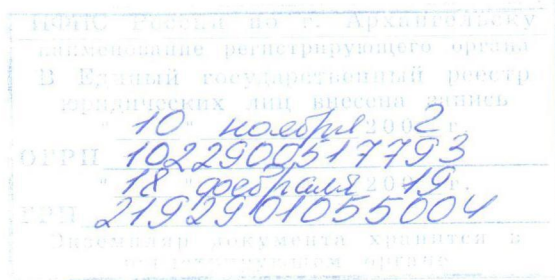 ИФНС России по г. Архангельску
наименование регистрирующего органа
В Единый государственный реестр
юридических лиц внесена запись
" 10 " ноября 2002 г.
ОГРН 1022900517793
" 18 " февраля 2019 г.
ГРН 2192901055004
Экземпляр документа хранится в
регистрирующем органе